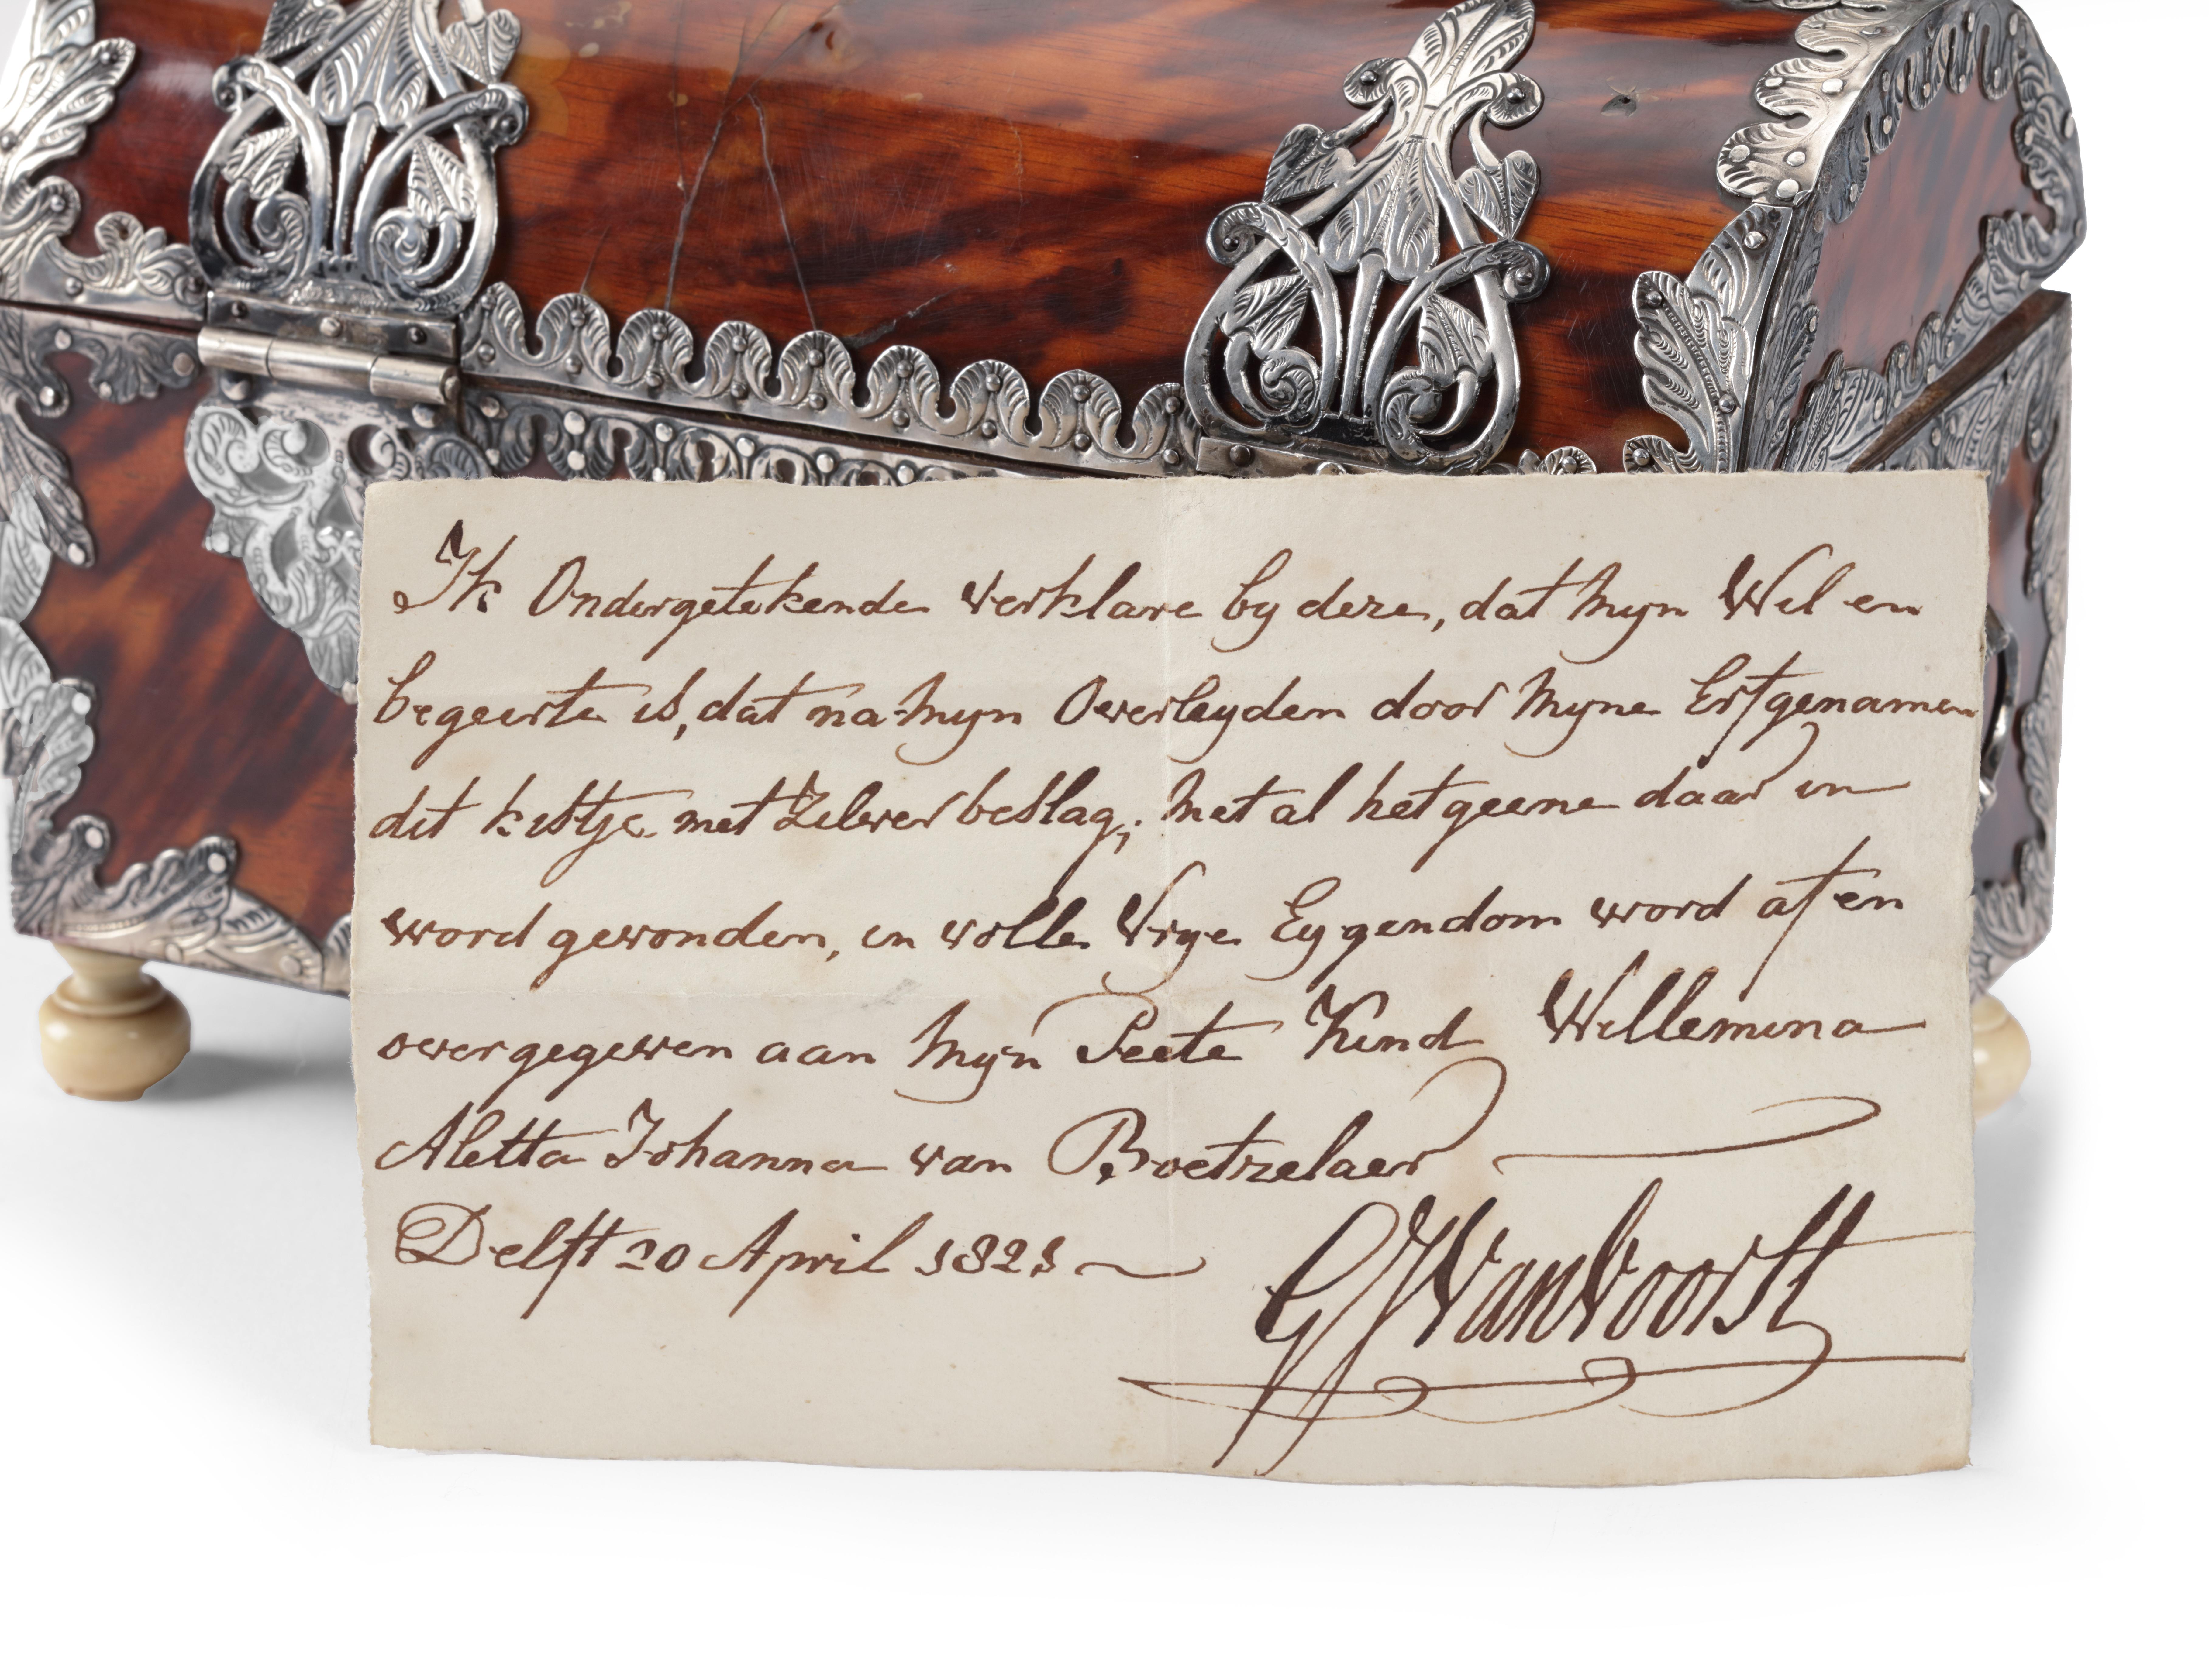 Ik Ondergetekende verklare by deze, dat Myn Wil en
begeerte is, dat na Myn Overleyden door Myne Erfgenamen
dit kistje met Zilver beslag, Met al het geene daar in
word gevonden, in volle Vrye Eygendom word af en
overgegeven aan Myn Peete Kind Willemina
Aletta Johanna van Boetzelaer
Delft 20 April 1821
GJWvanVoorst